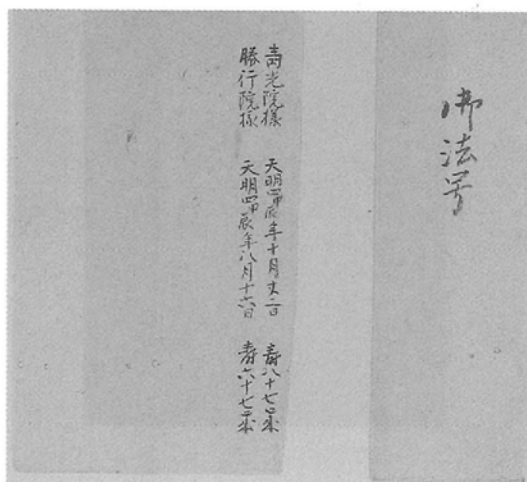 御法号
寿光院様 天明四甲辰年十月廿二日 寿八十七歳
勝行院様 天明四甲辰年八月十六日 寿六十七歳